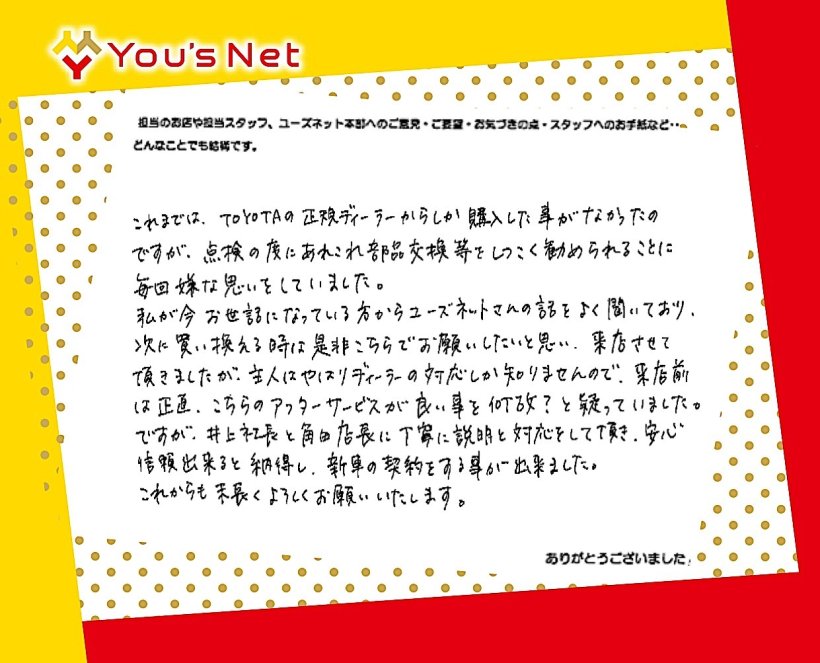 You's Net
担当のお店や担当スタッフ、ユーズネット本部へのご意見・ご要望・お気づきの点・スタッフへのお手紙など・・
どんなことでも結構です。
これまでは、TOYOTAの正規ディーラーからしか購入した事がなかったの
ですが、点検の度にあれこれ部品交換等をしつこく勧められることに
毎回嫌な思いをしていました。
私が今お世話になっている方からユーズネットさんの話をよく聞いており、
次に買い換える時は是非こちらでお願いしたいと思い、来店させて
頂きましたが、主人はやはりディーラーの対応しか知りませんので、来店前
は正直、こちらのアフターサービスが良い事を何故？と疑っていました。
ですが、井上社長と角田店長に丁寧に説明と対応をして頂き、安心
信頼出来ると納得し、新車の契約をする事が出来ました。
これからも末長くよろしくお願いいたします。
ありがとうございました